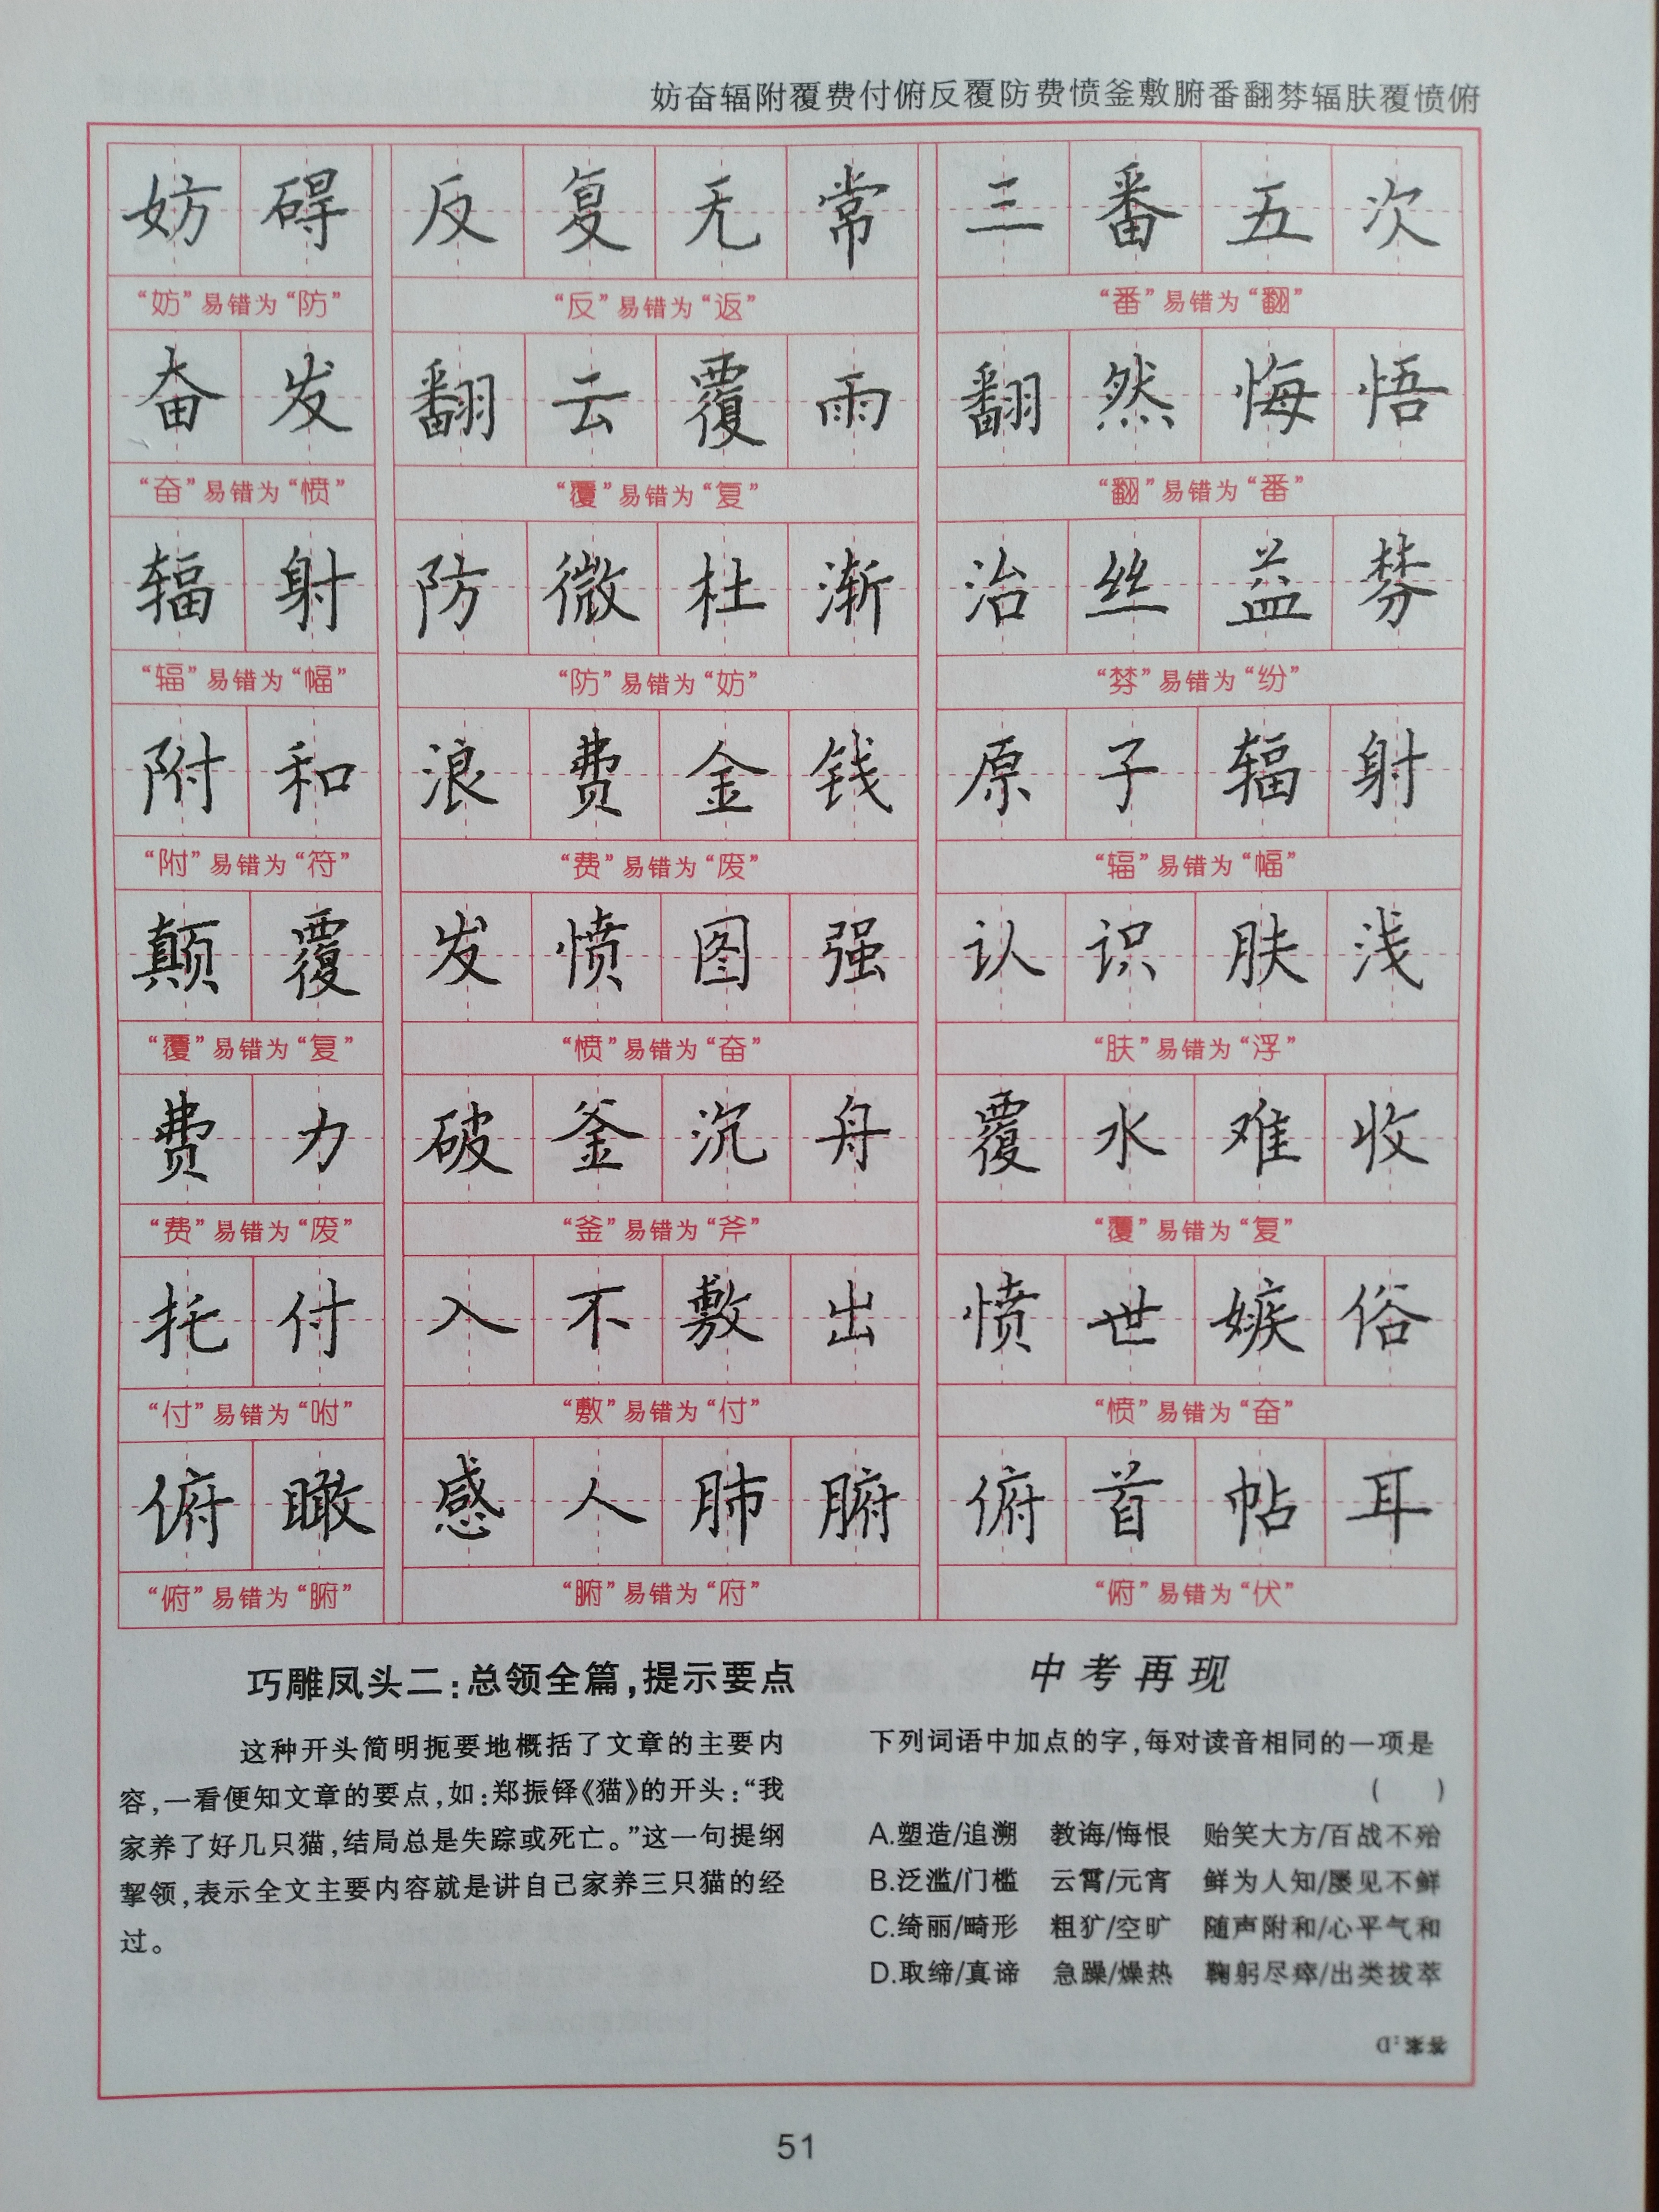 妨奋辐附覆费付俯反覆防费愤釜敷腑番翻棼辐肤覆愤俯
妨碍 反复无常 三番五次
“妨”易错为“防” “反”易错为“返” “番”易错为“翻”
奋发 翻云覆雨 翻然悔悟
“奋”易错为“愤” “覆”易错为“复” “翻”易错为“番”
辐射 防微杜渐 治丝益棼
“辐”易错为“幅” “防”易错为“妨” “棼”易错为“纷”
附和 浪费金钱 原子辐射
“附”易错为“符” “费”易错为“废” “辐”易错为“幅”
颠覆 发愤图强 认识肤浅
“覆”易错为“复” “愤”易错为“奋” “肤”易错为“浮”
费力 破釜沉舟 覆水难收
“费”易错为“废” “釜”易错为“斧” “覆”易错为“复”
托付 入不敷出 愤世嫉俗
“付”易错为“咐” “敷”易错为“付” “愤”易错为“奋”
俯瞰 感人肺腑 俯首帖耳
“俯”易错为“腑” “腑”易错为“府” “俯”易错为“伏”
巧雕凤头二:总领全篇,提示要点
这种开头简明扼要地概括了文章的主要内
容,一看便知文章的要点,如:郑振铎《猫》的开头:“我
家养了好几只猫,结局总是失踪或死亡。”这一句提纲
挈领,表示全文主要内容就是讲自己家养三只猫的经
过。
中考再现
下列词语中加点的字,每对读音相同的一项是
( )
A.塑造/追溯 教诲/悔恨 贻笑大方/百战不殆
B.泛滥/门槛 云霄/元宵 鲜为人知/屡见不鲜
C.绮丽/畸形 粗犷/空旷 随声附和/心平气和
D.取缔/真谛 急躁/燥热 鞠躬尽瘁/出类拔萃
答案:D
51